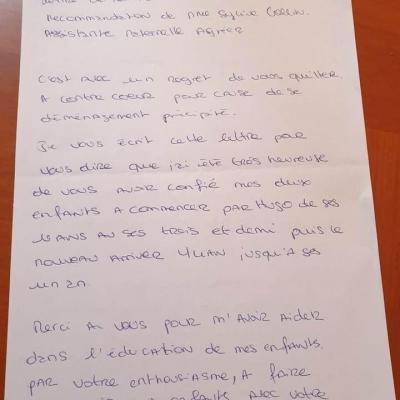 Recommandation de Mme Sylvie
Assistante Maternelle Agréer
C'est avec un regret de vous quiller.
A contre coeur pour cause de se
déménagement précipité.
Je vous écrit cette lettre pour
vous dire que j'ai été très heureuse
de vous avoir confié mes deux
enfants a commencer par Hugo de ses
ans au ses trois et demi puis le
nouveau arriver Ylan jusqu'a ses
un an.
Merci a vous pour m'avoir aider
dans l'éducation de mes enfants.
par votre enthousiasme, a faire
enfants avec votre